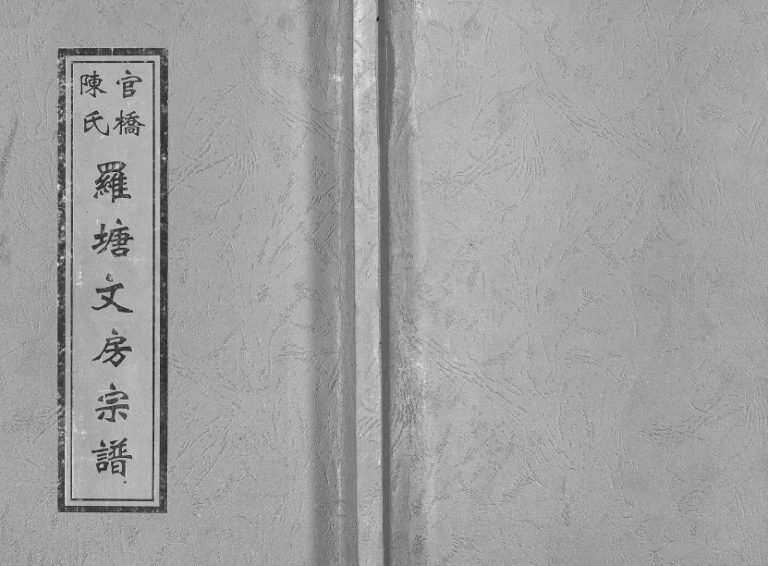 官橋
陳氏
羅塘文房宗譜